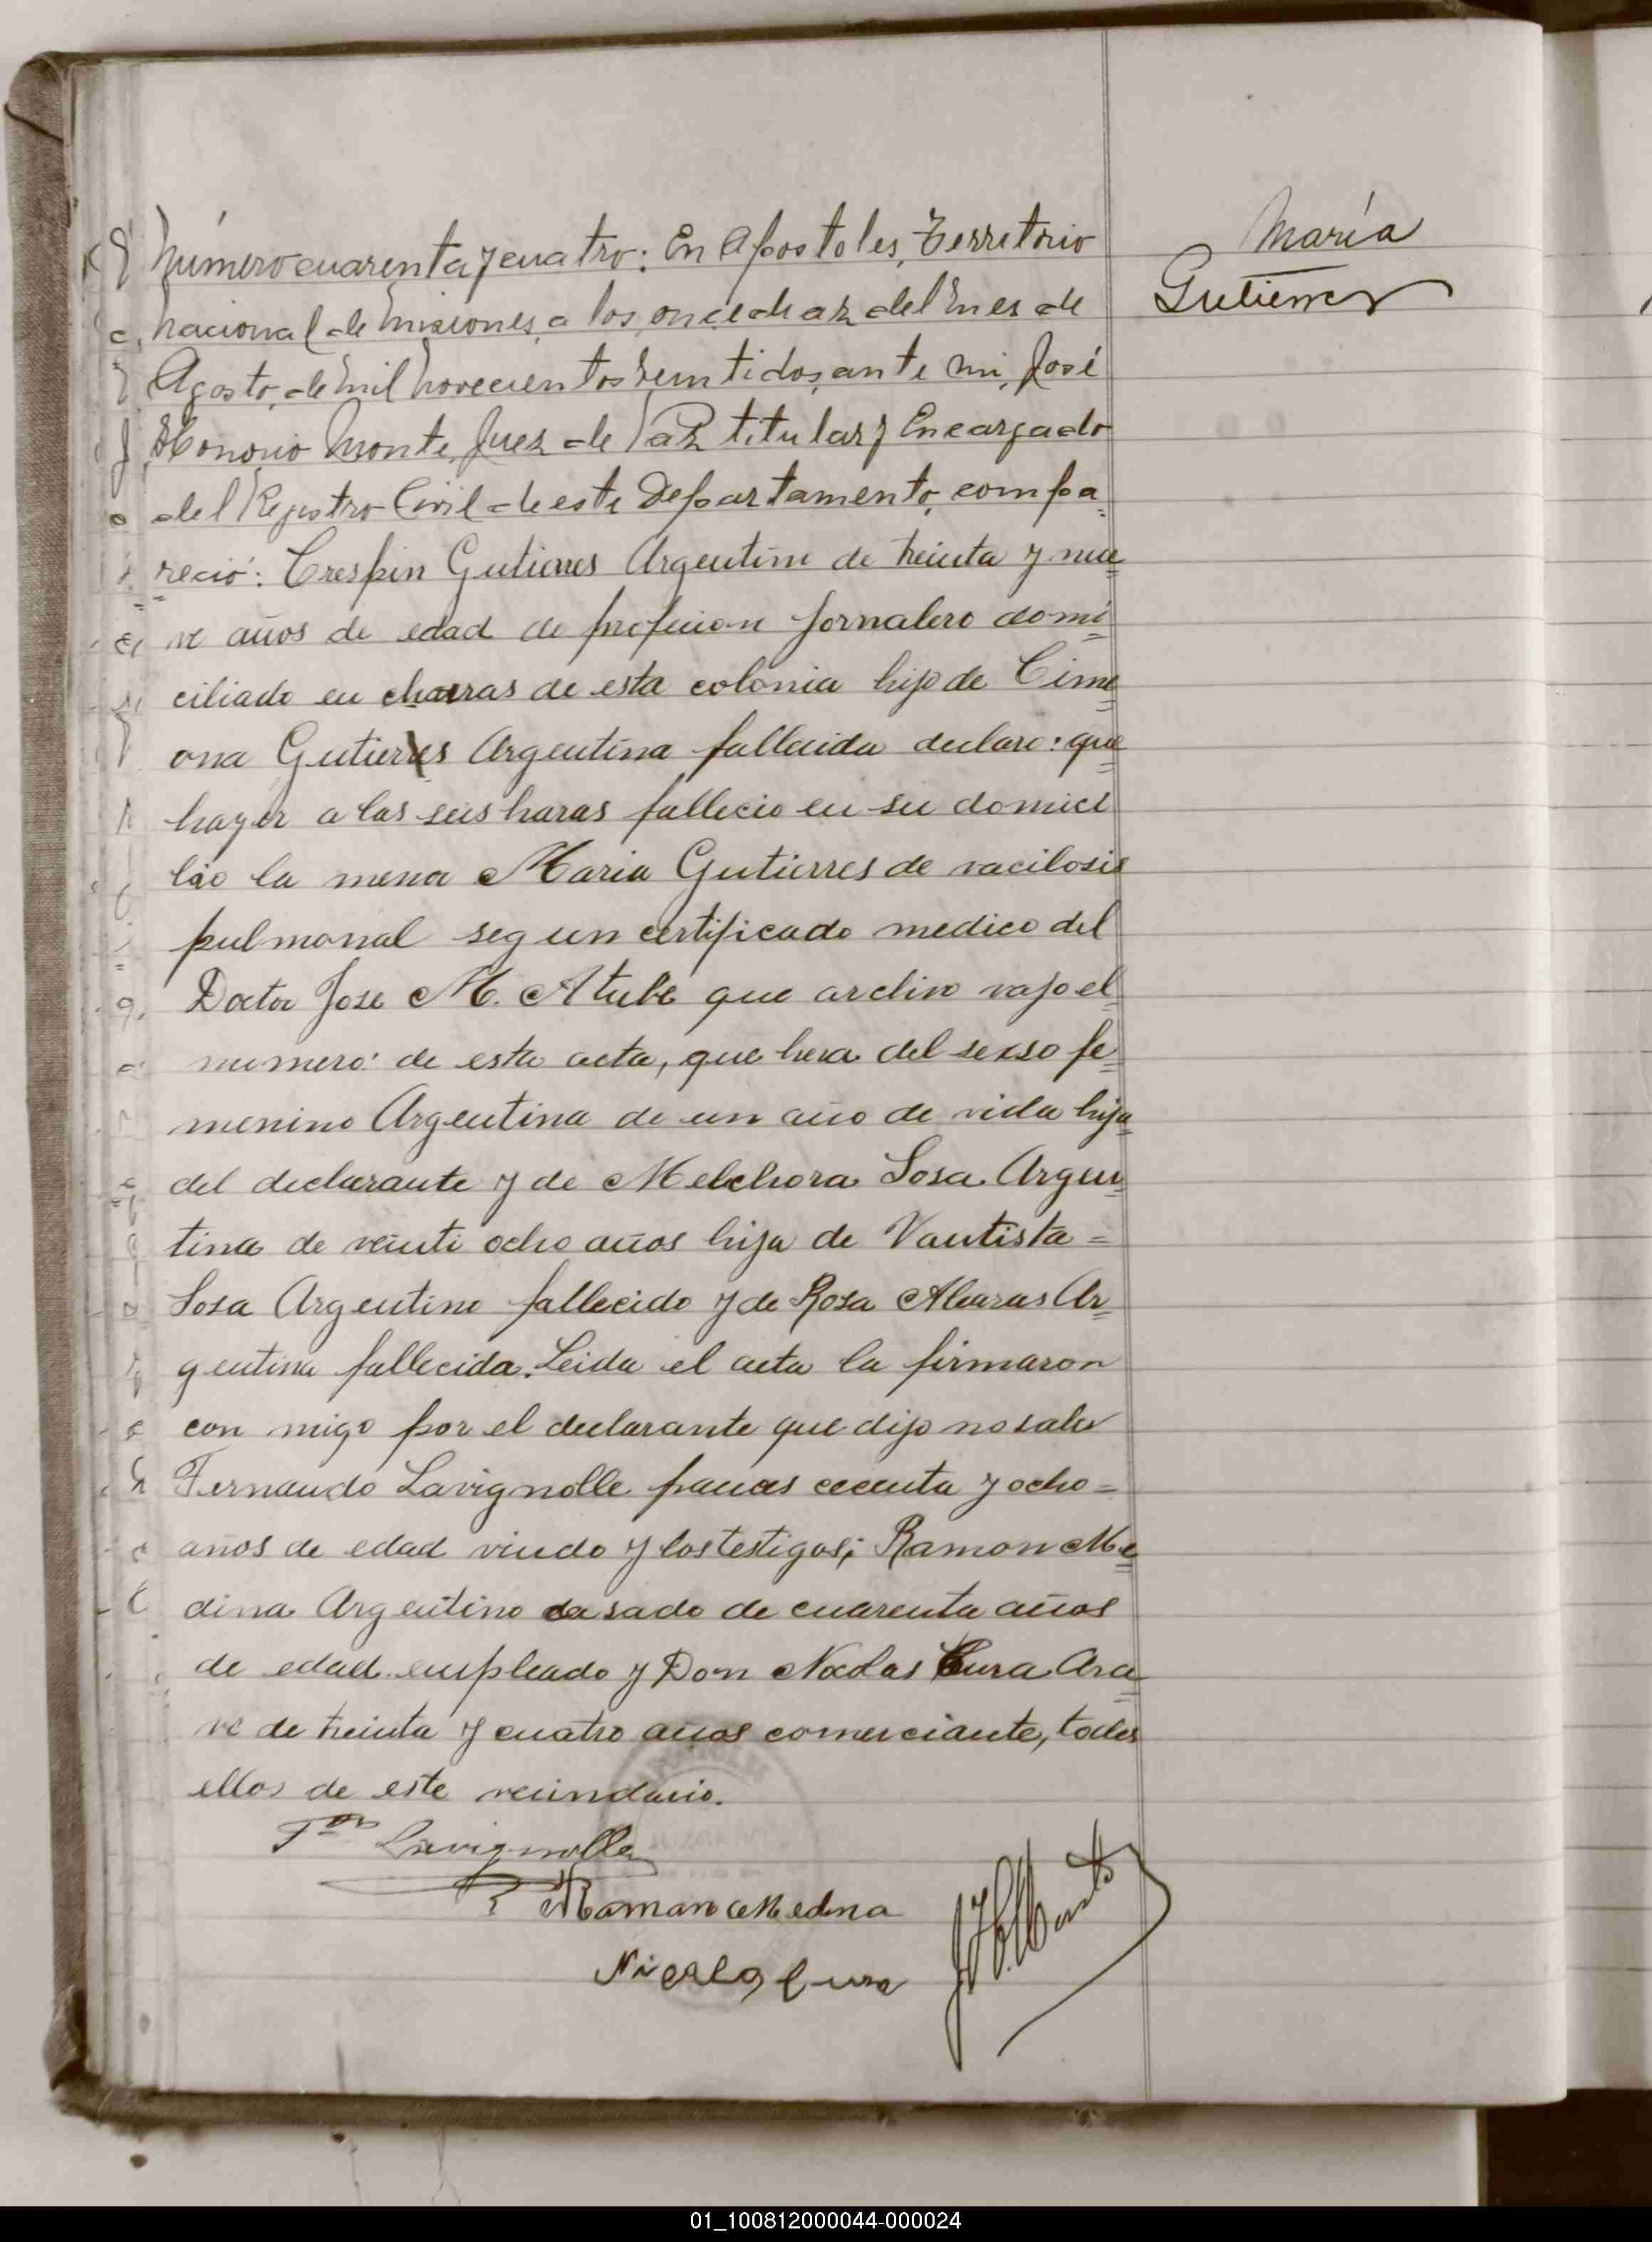 María
Gutierres
Número cuarenta y cuatro: En Apostoles, Territorio
Nacional de Misiones, a los once dias del mes de
Agosto, de mil novecientos veintidos, ante mi, José
Honorio Monte, Juez de Paz titular y Encargado
del Registro Civil de este Departamento, compa=
reció: Crespin Gutierres Argentino de treinta y nue=
ve años de edad de profecion jornalero domi=
ciliado en chacras de esta colonia hijo de Cime=
ona Gutierres Argentina fallecida declaro: que=
hayer a las seis horas fallecio en su domici
lio la menor Maria Gutierres de vacilosis
pulmonal segun certificado medico del
Doctor Jose M. que archivo vajo el
numero de esta acta, que hera del sexso fe=
menino Argentina de un año de vida hija=
del declarante y de Melchora Sosa Argen=
tina de veinti ocho años hija de Vautista =
Sosa Argentino fallecido y de Rosa Alvaras Ar=
gentina fallecida. Leida el acta la firmaron
con migo por el declarante que dijo no saber
Fernando Lavignolle frances cecenta y ocho =
años de edad viudo y los testigos; Ramon Me=
dina Argentino casado de cuarenta años
de edad empleado y Don Nicolas Cura Ara=
ve de treinta y cuatro años comerciante, todos
ellos de este vecindario.
Lavignolle
Raman Medina
Nicolas Cura
01_100812000044-000024